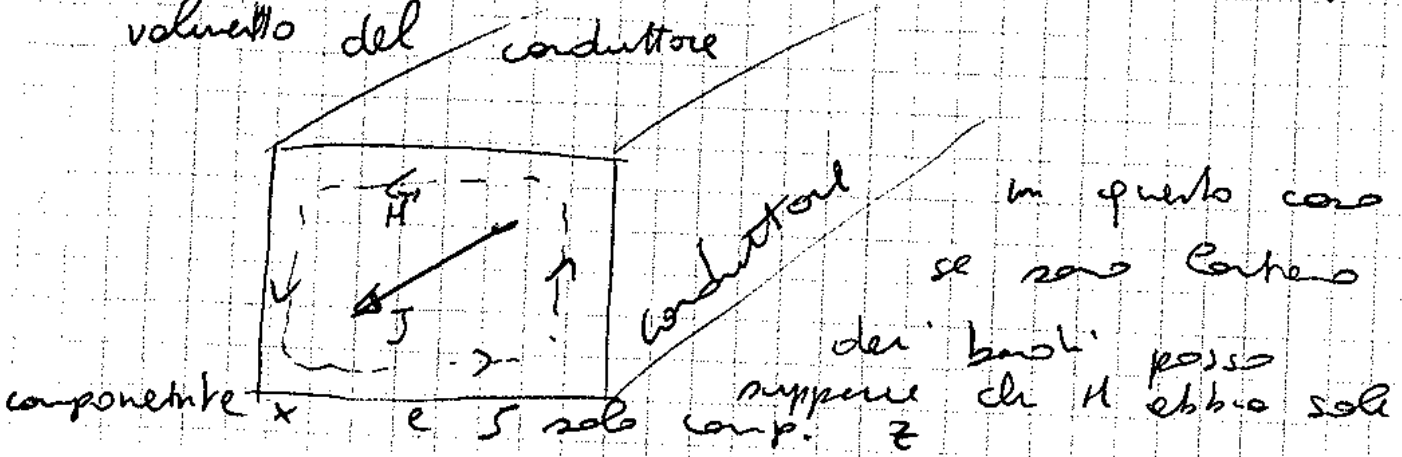 volumetto del conduttore
H
J
conduttore
in questo caso
se sono lontano
dai bordi posso
supporre che H abbia sole
componetnte x e J solo comp. z